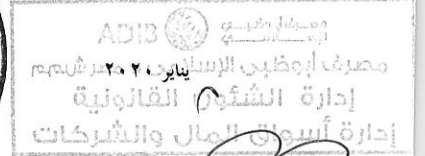 ADIB مصرف أبوظبي الإسلامي
مصرف أبوظبي الإسلامي
يناير ٢٠٢٠
إدارة الشئون القانونية
إدارة أسواق المال والشركات